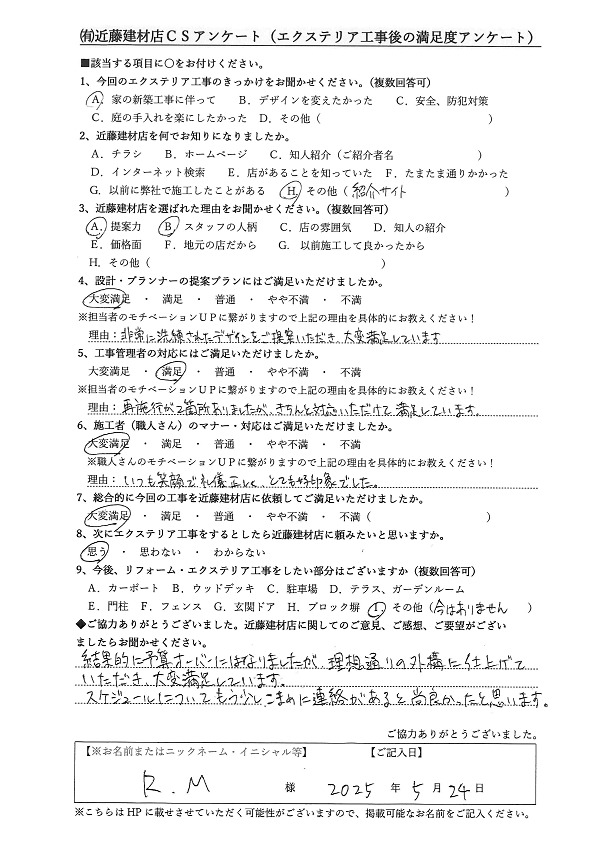 ㈲近藤建材店ＣＳアンケート（エクステリア工事後の満足度アンケート）
■該当する項目に〇をお付けください。
1、今回のエクステリア工事のきっかけをお聞かせください。（複数回答可）
A．家の新築工事に伴って　B．デザインを変えたかった　C．安全、防犯対策
C．庭の手入れを楽にしたかった　D．その他（　　　）
2、近藤建材店を何でお知りになりましたか。
A．チラシ　B．ホームページ　C．知人紹介（ご紹介者名　　　）
D．インターネット検索　E．店があることを知っていた　F．たまたま通りかかった
G．以前に弊社で施工したことがある　H．その他（紹介サイト　　　）
3、近藤建材店を選ばれた理由をお聞かせください。（複数回答可）
A．提案力　B．スタッフの人柄　C．店の雰囲気　D．知人の紹介
E．価格面　F．地元の店だから　G．以前施工して良かったから
H．その他（　　　）
4、設計・プランナーの提案プランにはご満足いただけましたか。
大変満足　・　満足　・　普通　・　やや不満　・　不満
※担当者のモチベーションＵＰに繋がりますので上記の理由を具体的にお教えください！
理由：非常に洗練されたデザインをご提案いただき、大変満足しています
5、工事管理者の対応にはご満足いただけましたか。
大変満足　・　満足　・　普通　・　やや不満　・　不満
※担当者のモチベーションＵＰに繋がりますので上記の理由を具体的にお教えください！
理由：再施行が2箇所ありましたが、きちんと対応いただけて満足しています。
6、施工者（職人さん）のマナー・対応はご満足いただけましたか。
大変満足　・　満足　・　普通　・　やや不満　・　不満
※職人さんのモチベーションＵＰに繋がりますので上記の理由を具体的にお教えください！
理由：いつも笑顔で礼儀正しく、とても好印象でした。
7、総合的に今回の工事を近藤建材店に依頼してご満足いただけましたか。
大変満足　・　満足　・　普通　・　やや不満　・　不満（　　　）
8、次にエクステリア工事をするとしたら近藤建材店に頼みたいと思いますか。
思う　・　思わない　・　わからない
9、今後、リフォーム・エクステリア工事をしたい部分はございますか（複数回答可）
A．カーポート　B．ウッドデッキ　C．駐車場　D．テラス、ガーデンルーム
E．門柱　F．フェンス　G．玄関ドア　H．ブロック塀　I．その他（今はありません　）
◆ご協力ありがとうございました。近藤建材店に関してのご意見、ご感想、ご要望がござい
ましたらお聞かせください。
結果的に予算オーバーにはなりましたが、理想通りの外構に仕上げて
いただき、大変満足しています。
スケジュールについてもう少しこまめに連絡があると尚良かったと思います。
ご協力ありがとうございました。
【※お名前またはニックネーム・イニシャル等】　【ご記入日】
R．M　様　2025　年　5　月　24　日
※こちらは HP に載せさせていただく可能性がございますので、掲載可能なお名前をご記入ください。